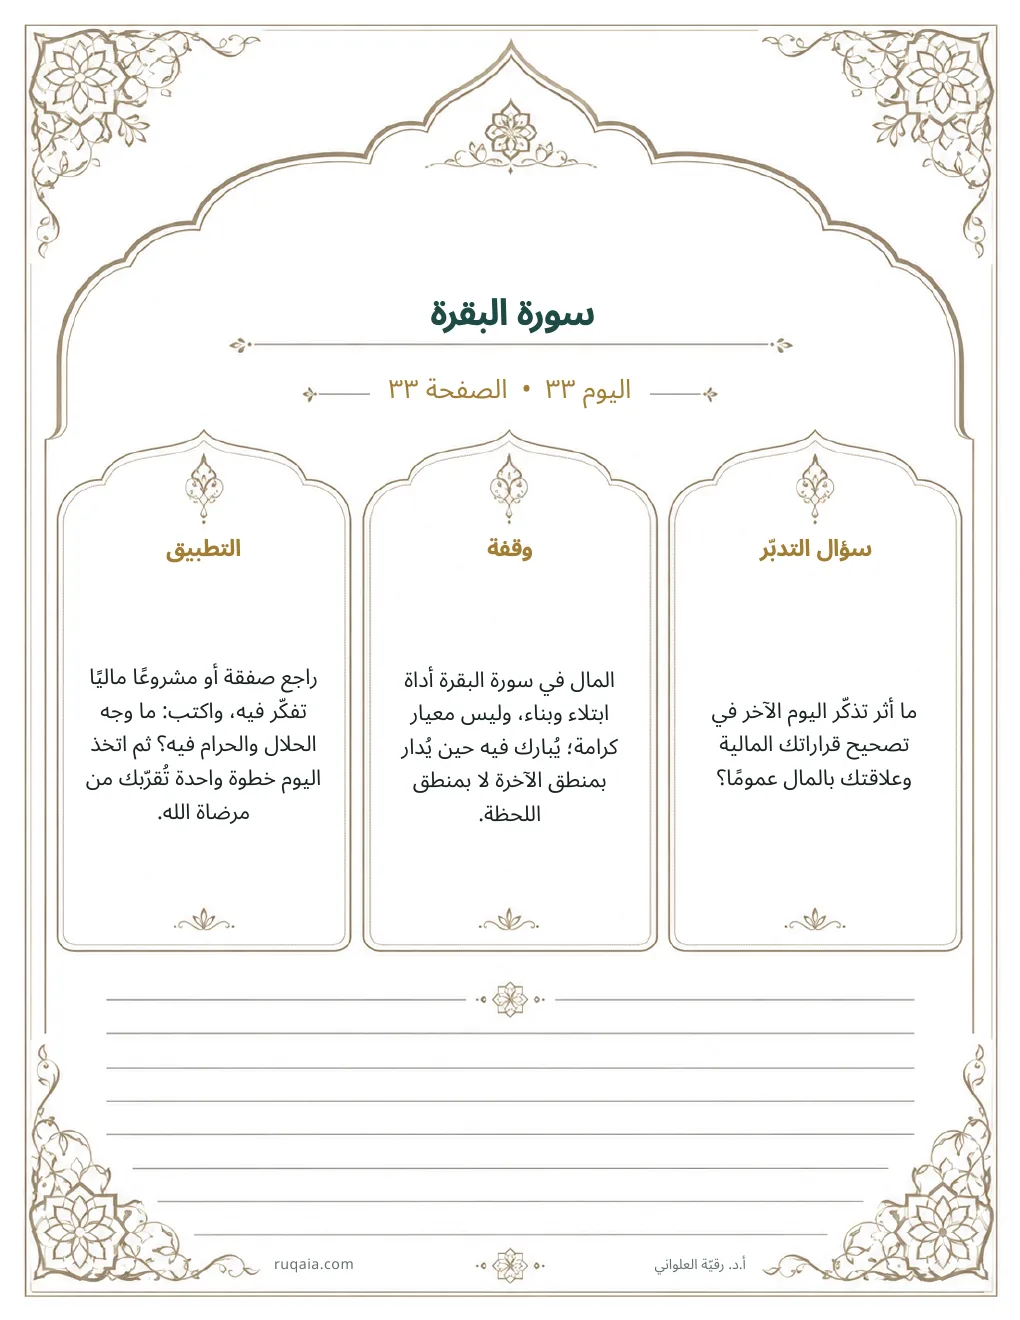 سورة البقرة
اليوم ٣٣ • الصفحة ٣٣
سؤال التدبّر
ما أثر تذكّر اليوم الآخر في
تصحيح قراراتك المالية
وعلاقتك بالمال عمومًا؟
وقفة
المال في سورة البقرة أداة
ابتلاء وبناء، وليس معيار
كرامة؛ يُبارك فيه حين يُدار
بمنطق الآخرة لا بمنطق
اللحظة.
التطبيق
راجع صفقة أو مشروعًا ماليًا
تفكّر فيه، واكتب: ما وجه
الحلال والحرام فيه؟ ثم اتخذ
اليوم خطوة واحدة تُقرّبك من
مرضاة الله.
أ.د. رقيّة العلواني
ruqaia.com